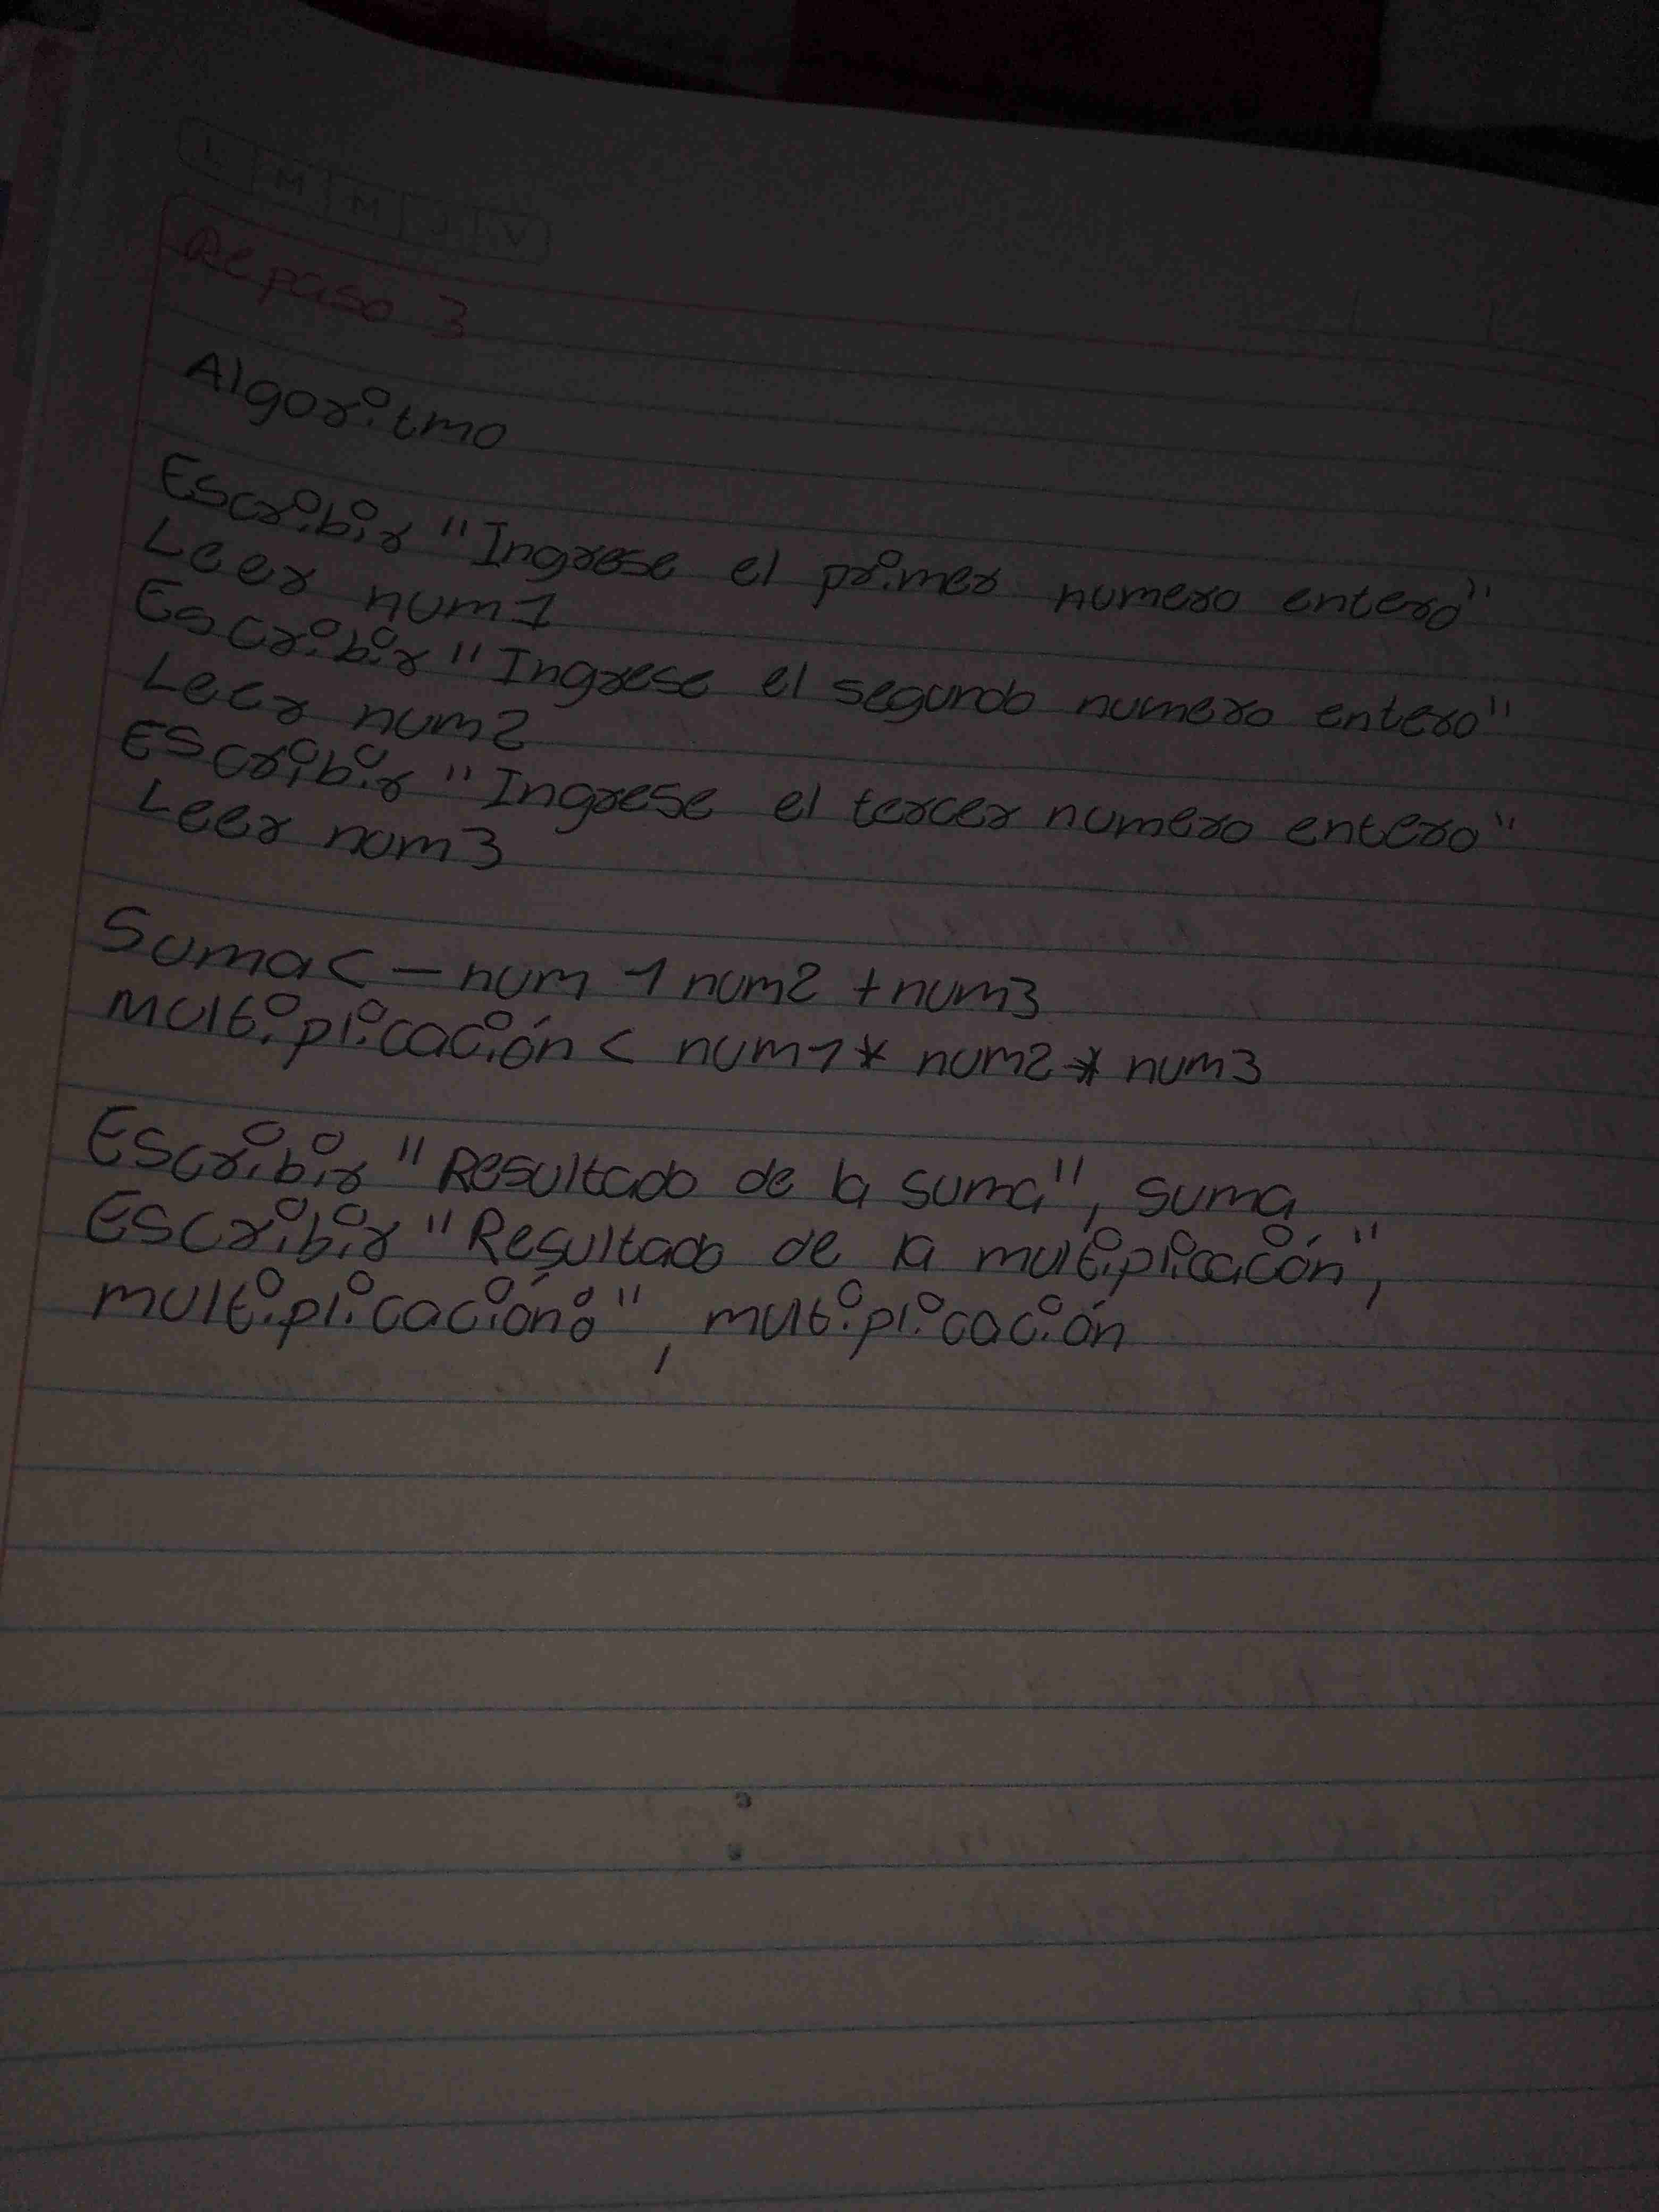 L M M J V
Repaso 3
Algoritmo
Escribir "Ingrese el primer numero entero"
Leer num1
Escribir "Ingrese el segundo numero entero"
Leer num2
Escribir "Ingrese el tercer numero entero"
Leer num3
Suma<-num 1 num2 +num3
multiplicación < num1* num2* num3
Escribir "Resultado de la suma", suma
Escribir "Resultado de la multiplicación",
multiplicación:", multiplicación